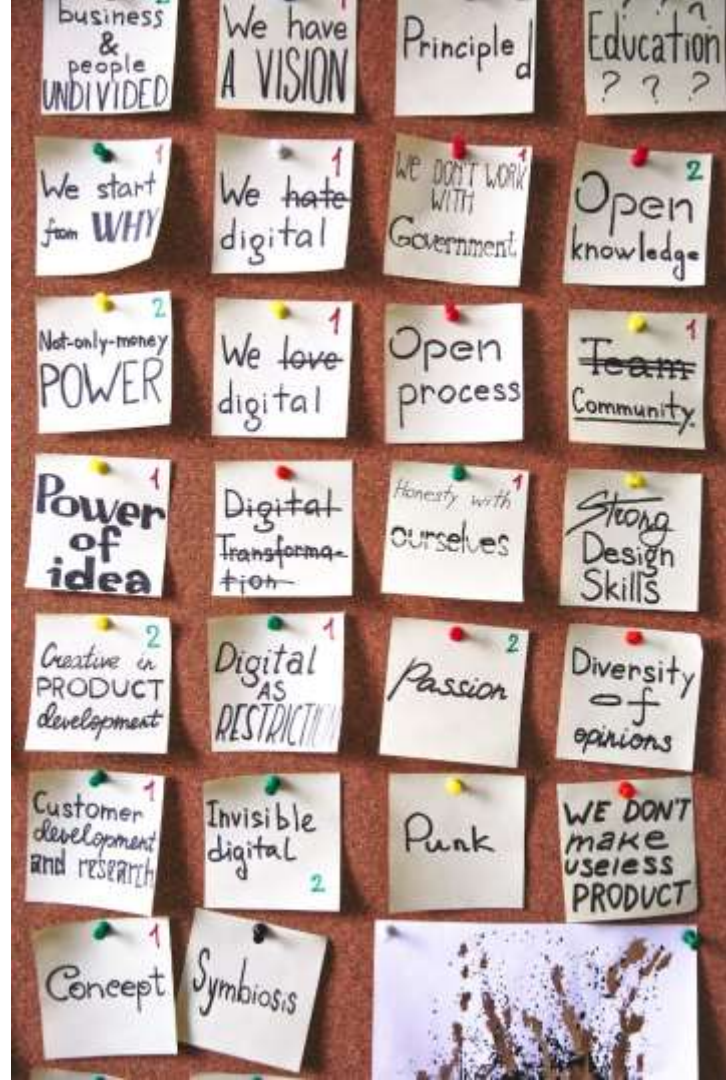 2
business
&
people
UNDIVIDED
1
We have
A VISION
Principled
? ? ?
Education
? ? ?
1
We start
from WHY
1
We hate
digital
1
WE DON'T WORK
WITH
Government
2
Open
knowledge
2
Not-only-money
POWER
1
We love
digital
Open
process
1
Team
Community
1
Power
of
idea
Digital
Transforma-
tion
1
Honesty with
ourselves
Strong
Design
Skills
2
Creative in
PRODUCT
development
1
Digital
AS
RESTRICTION
2
Passion
Diversity
of
opinions
1
Customer
development
and research
Invisible
digital
2
Punk
WE DON'T
make
useless
PRODUCT
1
Concept
Symbiosis